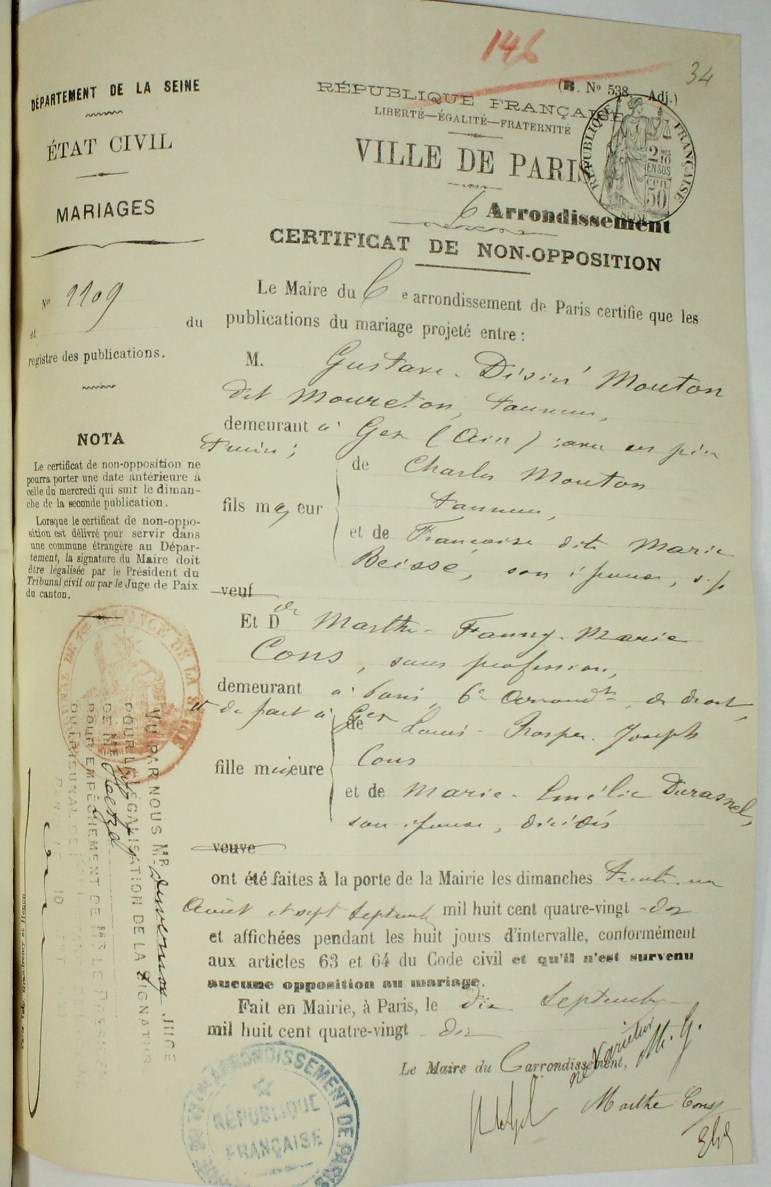 146
34
(B. No 538, Adj.)
DÉPARTEMENT DE LA SEINE
ÉTAT CIVIL
MARIAGES
No 1109
et du
registre des publications.
NOTA
Le certificat de non-opposition ne
pourra porter une date antérieure à
celle du mercredi qui suit le diman-
che de la seconde publication.
Lorsque le certificat de non-oppo-
sition est délivré pour servir dans
une commune étrangère au Dépar-
tement, la signature du Maire doit
être légalisée par le Président du
Tribunal civil ou par le Juge de Paix
du canton.
RÉPUBLIQUE FRANÇAISE
LIBERTÉ—ÉGALITÉ—FRATERNITÉ
VILLE DE PARIS
RÉPUBLIQUE FRANÇAISE
2/10
EN SUS
50
6 Arrondissement
CERTIFICAT DE NON-OPPOSITION
Le Maire du 6e arrondissement de Paris certifie que les
publications du mariage projeté entre :
M. Gustave-Désiré Mouton
dit Moureton,
demeurant à Gex (Ain) avec ses père
et mère ;
fils majeur de Charles Mouton
et de Françoise dite Marie
Beisse, son épouse, s.p
veuf
Et Dlle Marthe-Fanny-Marie
Cons, sans profession,
demeurant à Paris, 6e arrondt, de droit,
et de fait à Gex
fille mineure de Louis-Prosper-Joseph
Cons
et de Marie-Emélie Durasnel,
son épouse, décédés
veuve
ont été faites à la porte de la Mairie les dimanches trente-un
Août et sept Septembre mil huit cent quatre-vingt-dix
et affichées pendant les huit jours d'intervalle, conformément
aux articles 63 et 64 du Code civil et qu'il n'est survenu
aucune opposition au mariage.
Fait en Mairie, à Paris, le dix Septembre
mil huit cent quatre-vingt-dix
Le Maire du 6 arrondissement,
ne Varietur
M. G.
Marthe Cons
VU PAR NOUS MR JUGE
POUR LÉGALISATION DE LA SIGNATURE
DE MR
POUR EMPÊCHEMENT DE MR LE PRÉSIDENT
DU TRIBUNAL DE
ARRONDISSEMENT DE PARIS
RÉPUBLIQUE
FRANÇAISE